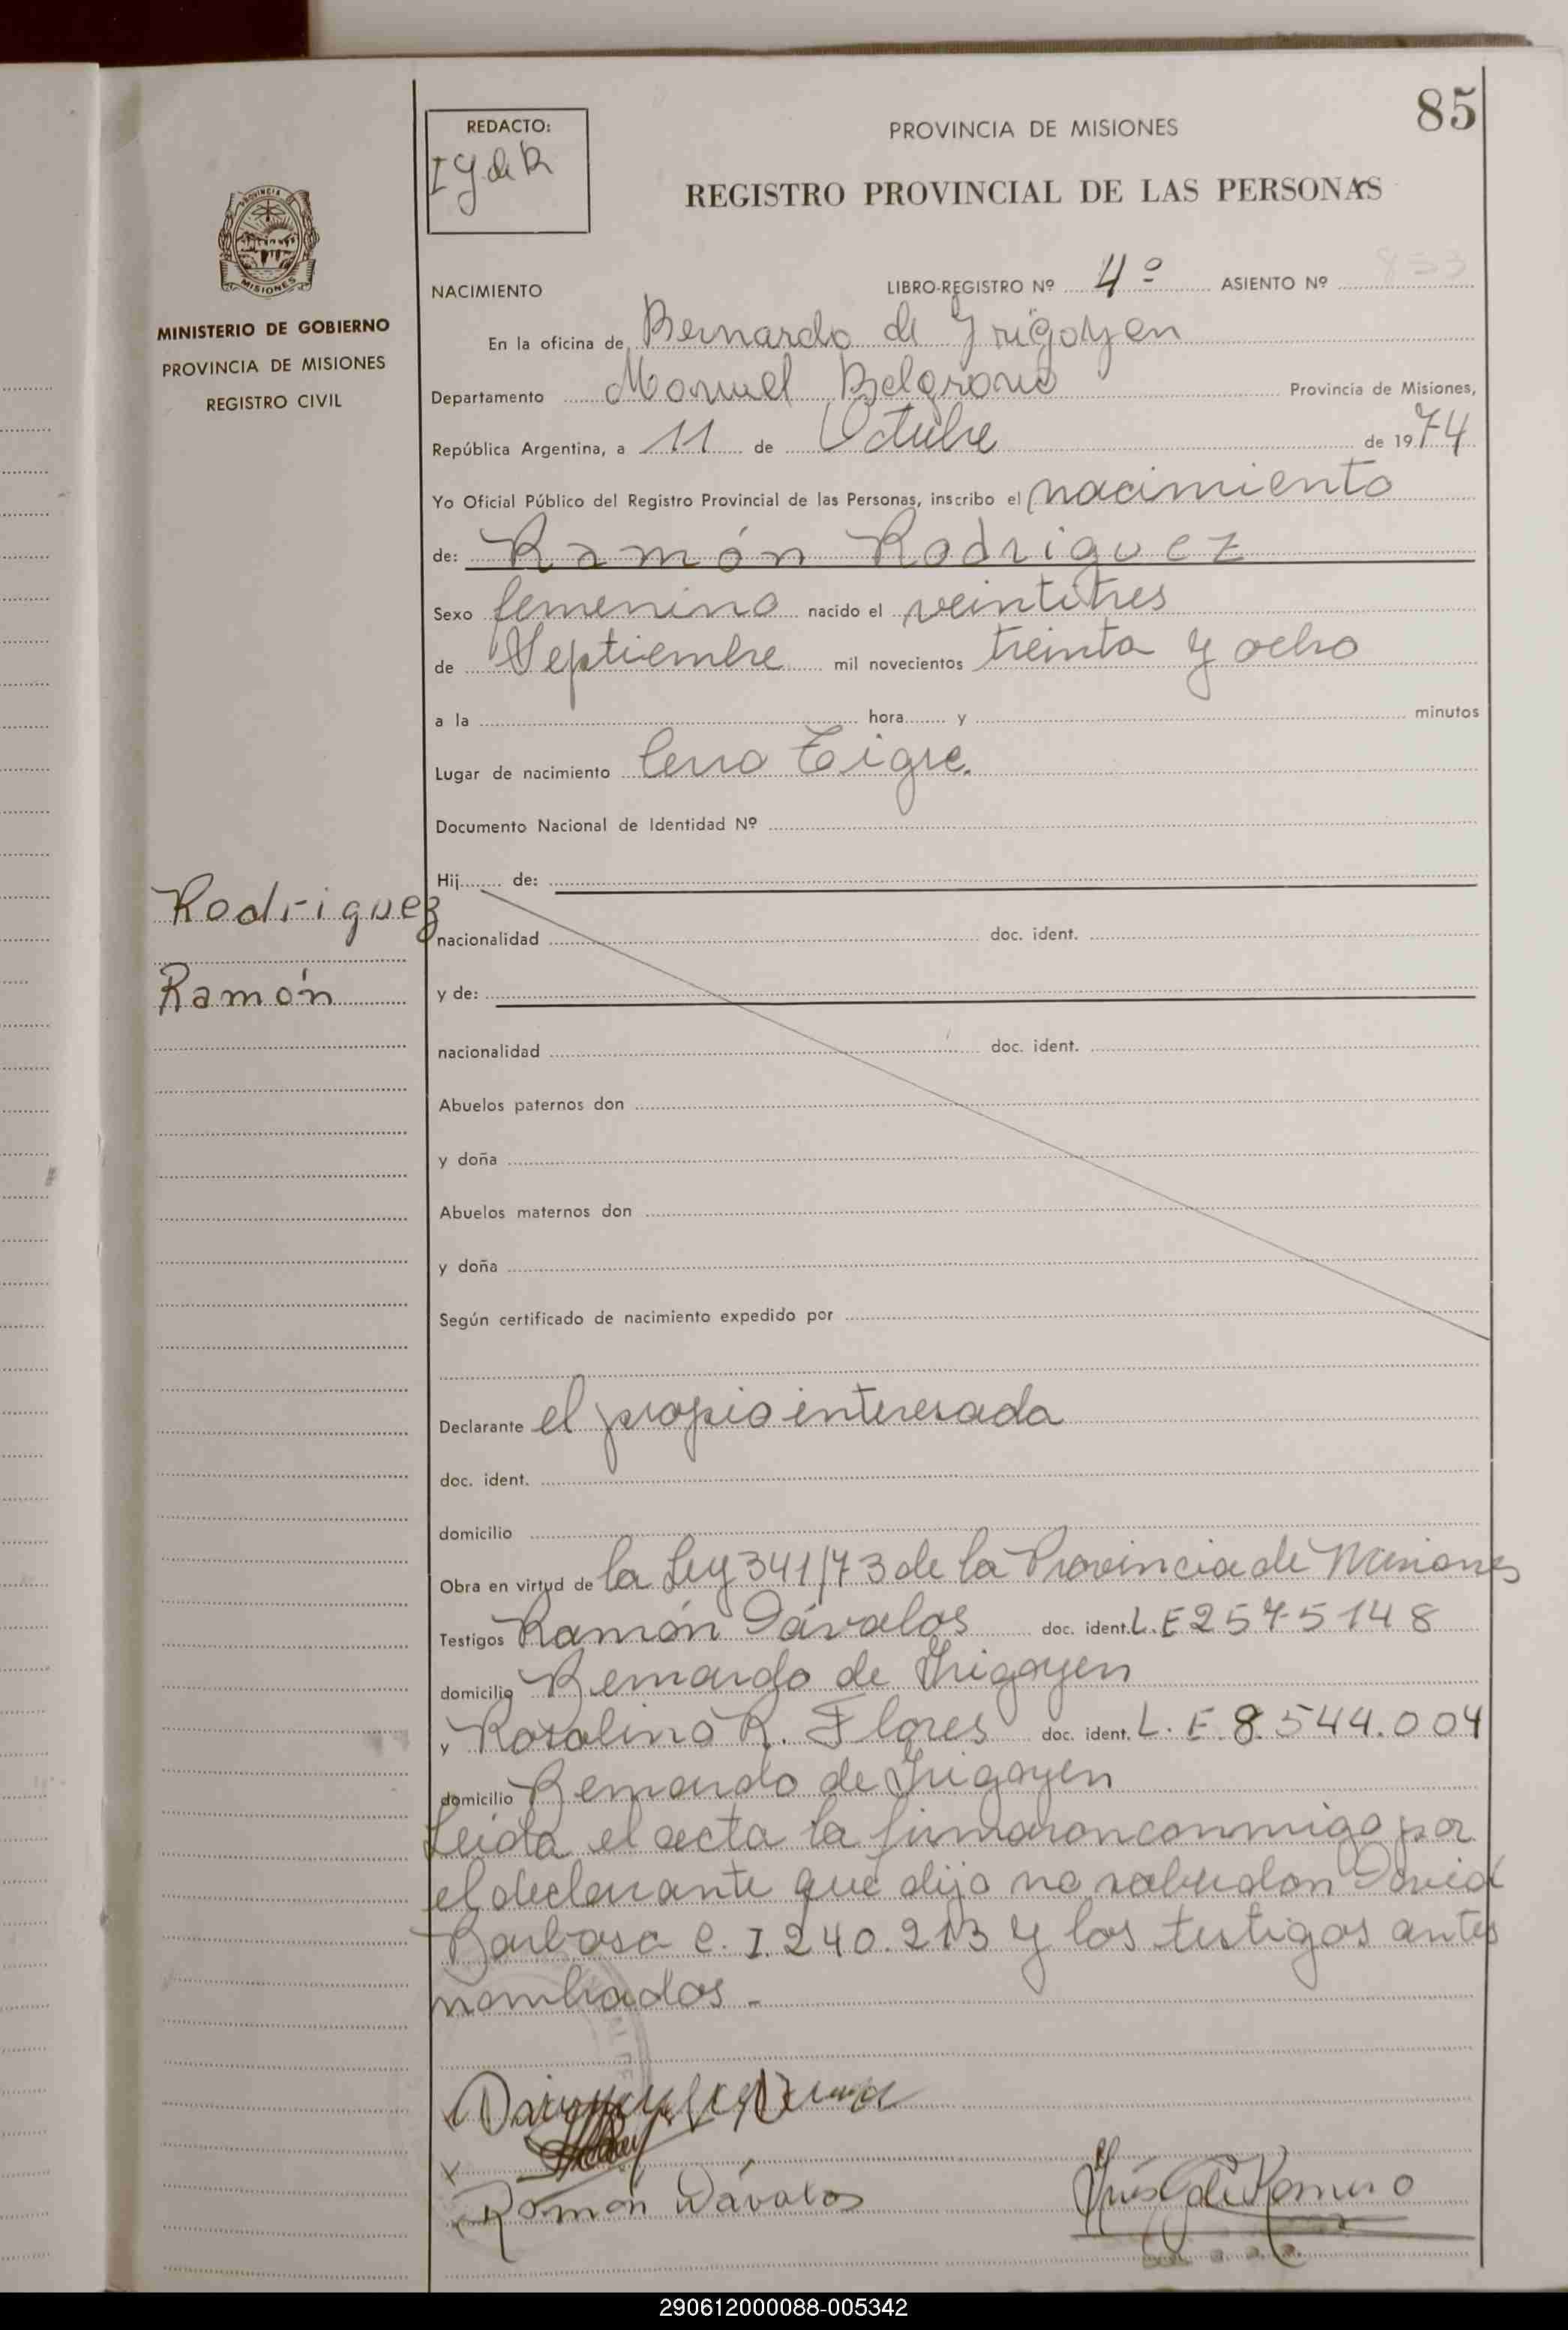 85
REDACTO:
I G de R
PROVINCIA DE MISIONES
REGISTRO PROVINCIAL DE LAS PERSONAS
PROVINCIA
MISIONES
MINISTERIO DE GOBIERNO
PROVINCIA DE MISIONES
REGISTRO CIVIL
NACIMIENTO LIBRO-REGISTRO Nº 4º ASIENTO Nº 833
En la oficina de Bernardo de Yrigoyen
Departamento Manuel Belgrano Provincia de Misiones,
República Argentina, a 11 de Octubre de 1974
Yo Oficial Público del Registro Provincial de las Personas, inscribo el nacimiento
de: Ramón Rodriguez
Sexo femenino nacido el veintitres
de Septiembre mil novecientos treinta y ocho
a la hora y minutos
Lugar de nacimiento Cerro Tigre.
Documento Nacional de Identidad Nº
Hij de:
Rodriguez
nacionalidad doc. ident.
Ramón
y de:
nacionalidad doc. ident.
Abuelos paternos don
y doña
Abuelos maternos don
y doña
Según certificado de nacimiento expedido por
Declarante el propio interesada
doc. ident.
domicilio
Obra en virtud de la Ley 341/73 de la Provincia de Misiones
Testigos Ramón Dávalos doc. ident. L.E 2575148
domicilio Bernardo de Irigoyen
y Rosalino R. Flores doc. ident. L.E. 8.544.004
domicilio Bernardo de Irigoyen
Leída el acta la firmaron conmigo por
el declarante que dijo no saber don David
Barbosa C.I. 240.213 y los testigos antes
nombrados.-
x
Ramón Dávalos
Inés G de Romero
290612000088-005342